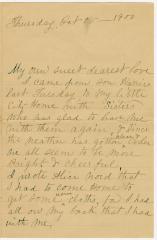 Thursday, Oct 1900
My own sweet dearest love
I came from
last Tuesday to My little
City home with Sisters
Who was glad to have me
with them again, & Since
the weather has gotten cooler
we all seems to be more
Bright & cheerful.
I wrote that
I had to come home to
get some warm cloths, for I had
all on My back that I had
with me,